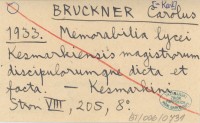 BRUCKNER Carolus
1933. Memorabilia lycei
Kesmarkiensis magistrorum
discipulorumque dicta et
facta. — Kesmarkini
VIII, 205, 8°.